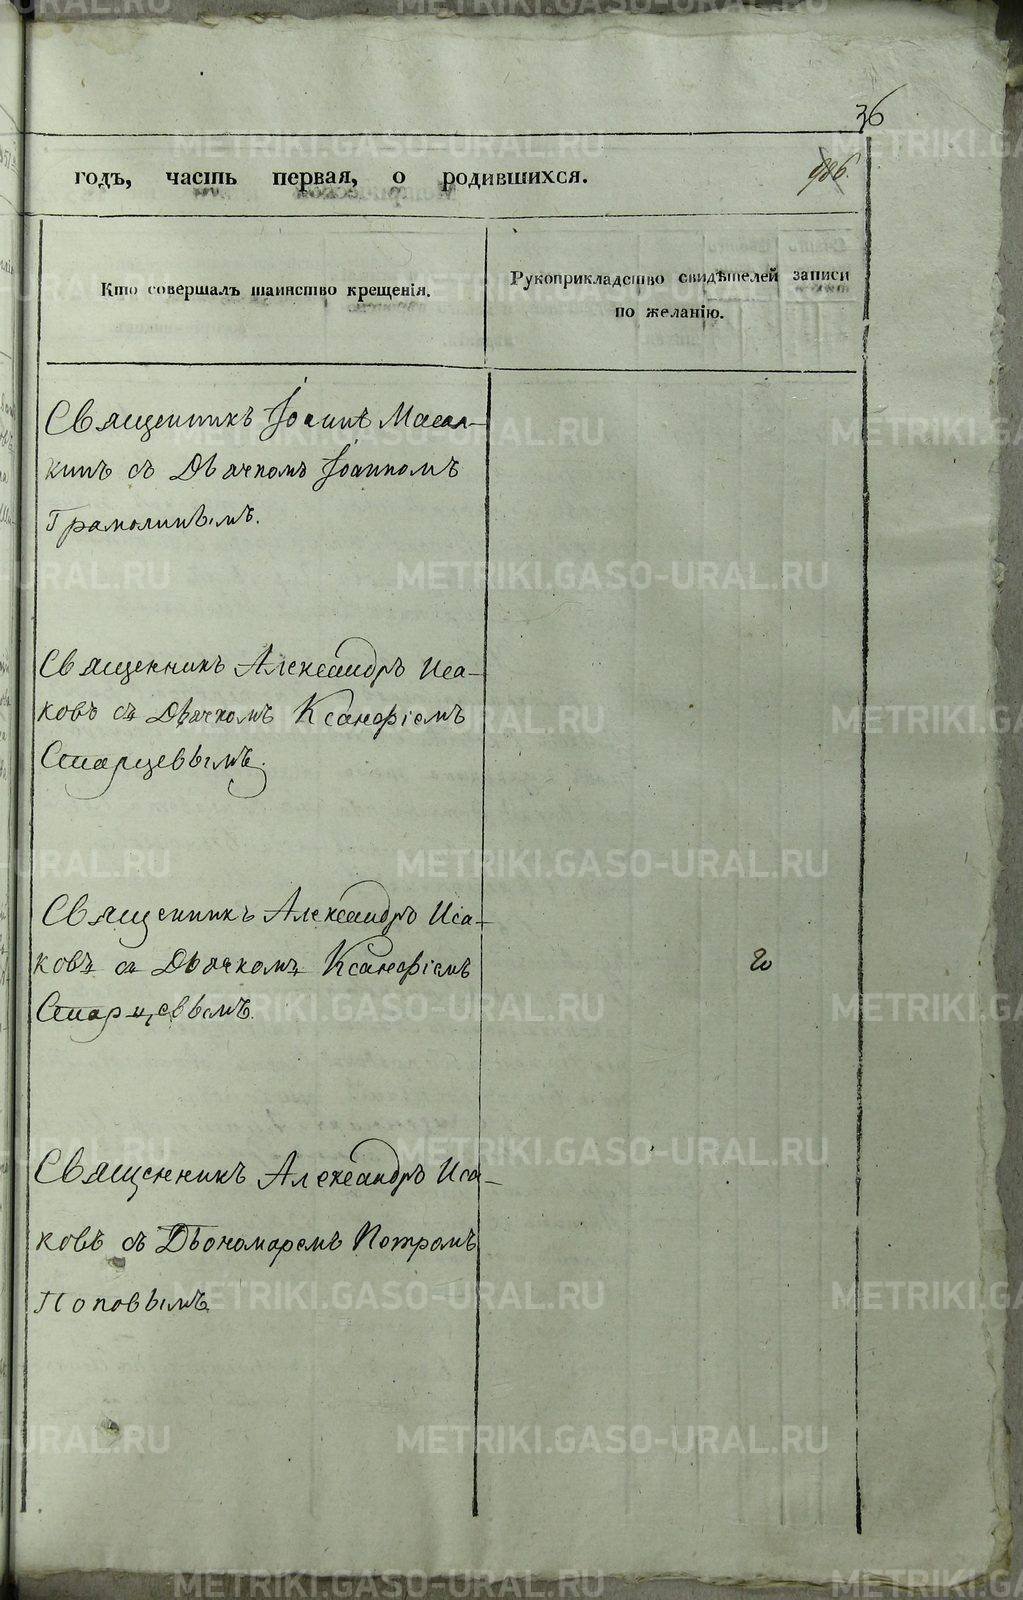 36
годъ, часть первая, о родившихся.
986.
Кто совершалъ таинство крещенія.
Рукоприкладство свидѣтелей записи
по желанію.
Священникъ Іоаннъ Масал-
кинъ съ Дьячкомъ Іоанномъ
Священникъ Александръ Иса-
ковъ съ Дьячкомъ Ксанофіемъ
Старцевымъ.
Священникъ Александръ Иса-
ковъ съ Дьячкомъ Ксанофіемъ
Старцевымъ.
Священникъ Александръ Иса-
ковъ съ Пономаремъ Петромъ
Поповымъ
METRIKI.GASO-URAL.RU